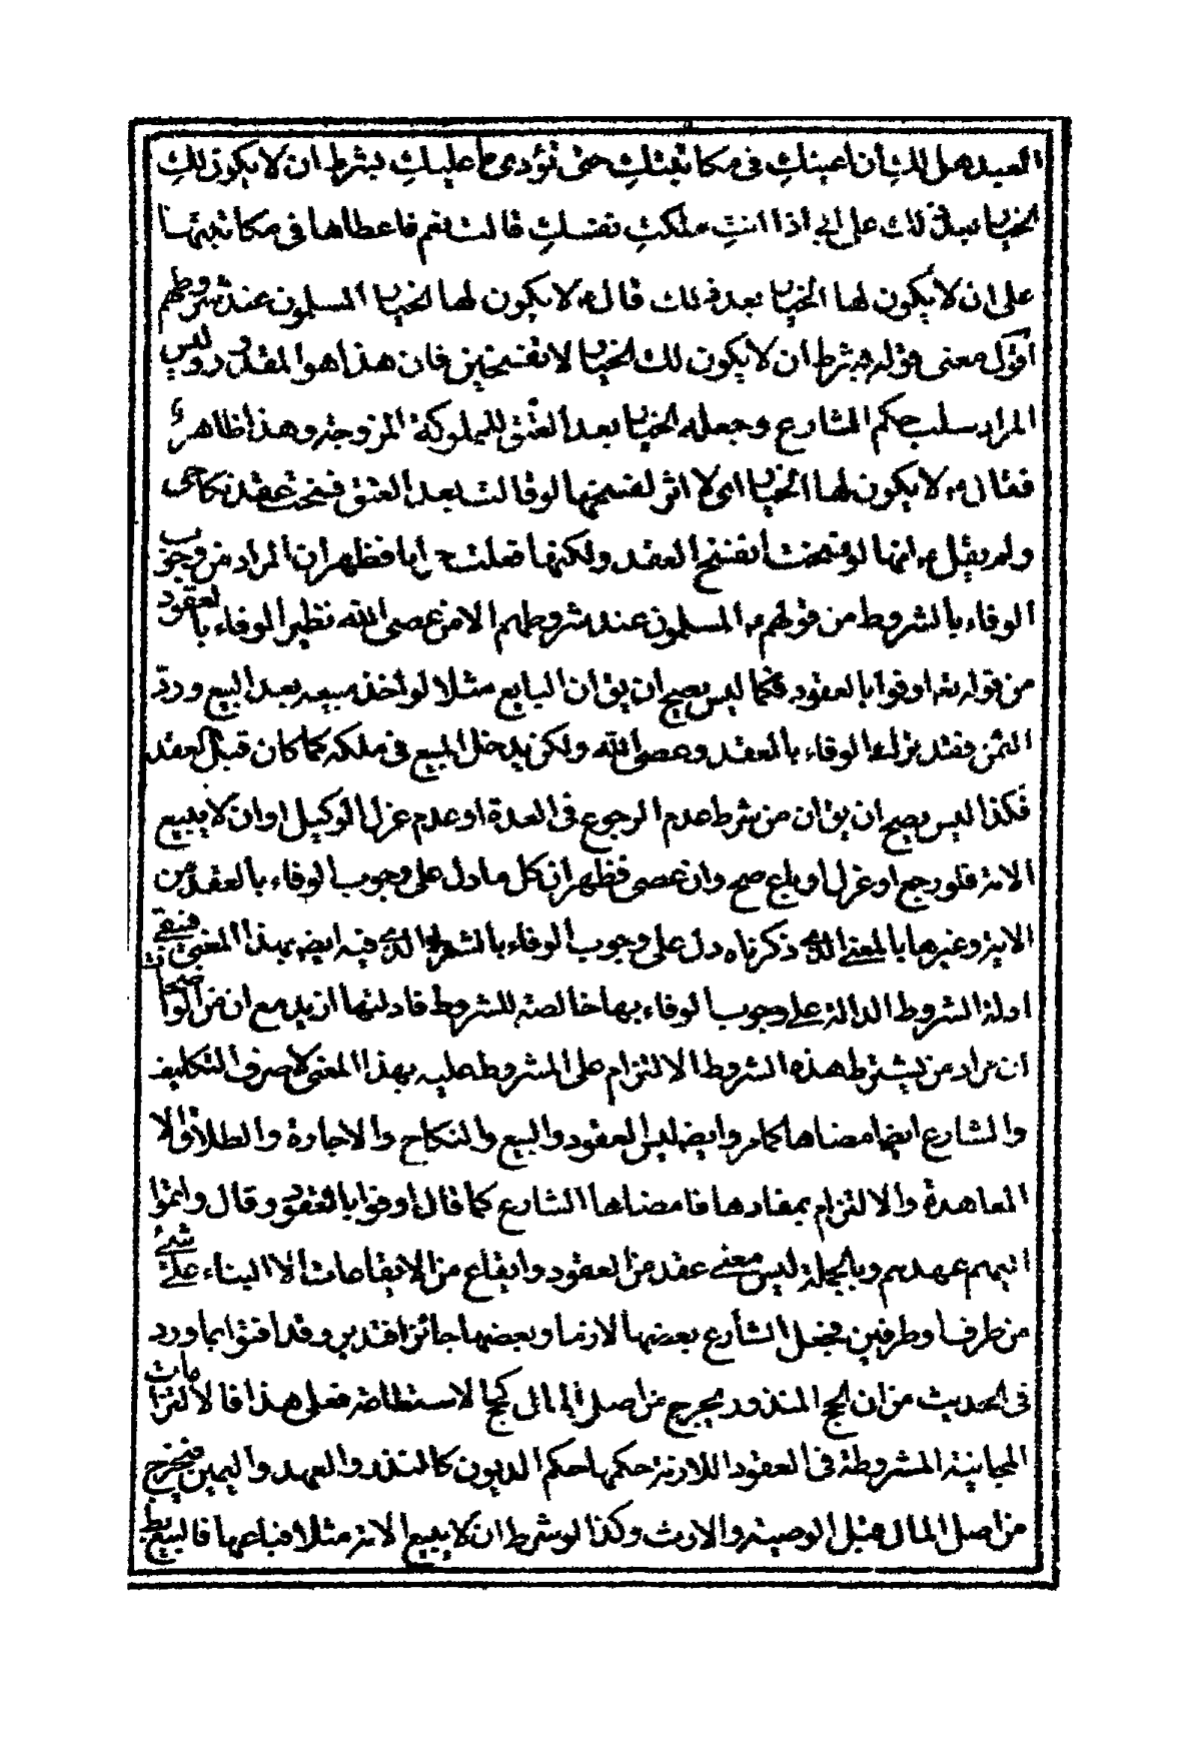 العبد هل لك أن أعينك في مكاتبتك حتى تؤدي ما عليك بشرط ان لا يكون لك
الخيار بعد ذلك على ابي اذا انت ملكت نفسك قالت نعم فاعطاها في مكاتبتها
على ان لا يكون لها الخيار بعد ذلك قال ء لا يكون لها الخيار المسلمون عند شروطهم
أقول معنى قوله بشرط ان لا يكون لك الخيار لا تفسخين فان هذا هو المقدور وليس
المراد سلب حكم الشارع وجعله الخيار بعد العتق للمملوكة المزوجة وهذا ظاهر
فقال ء لا يكون لها الخيار اي لا اثر لفسخها لو قالت بعد العتق فسخت عقد نكاحي
ولم يقل ء انها لو فسخت انفسخ العقد ولكنها فعلت حراما فظهر ان المراد من وجوب
الوفاء بالشروط من قولهم ء المسلمون عند شروطهم الا من عصى الله نظير الوفاء بالعقود
من قوله تعـ اوفوا بالعقود فكما ليس يصح ان يق ان البايع مثلا لو اخذ مبيعه بعد البيع ورد
الثمن فقد ترك الوفاء بالعقد وعصى الله ولكن يدخل المبيع في ملكه كما كان قبل العقد
فكذا ليس يصح ان يق ان من شرط عدم الرجوع في العدة او عدم عزل الوكيل او ان لا يبيع
الامة فلو رجع او عزل او باع صح وان عصى فظهر ان كل ما دل على وجوب الوفاء بالعقد من
الاية وغيرها بالمعنى الذي ذكرناه دل على وجوب الوفاء بالشرط الذي فيه ايضه بهذا المعنى فتبقى
ادلة الشروط الدالة على وجوب الوفاء بها خالصة للشروط فادلتها ازيد مع ان من الواضحات
ان مراد من يشترط هذه الشروط الالتزام على المشروط عليه بهذا المعنى لا صرف التكليف
والشارع ايضا امضاها كما مر وايضه ليس العقود والبيع والنكاح والاجارة والطلاق الا
المعاهدة والالتزام بمفادها فامضاها الشارع كما قال اوفوا بالعقود وقال واتموا
اليهم عهدهم وبالجملة ليس معنى عقد من العقود وايقاع من الايقاعات الا البناء على شيء
من طرف او طرفين فجعل الشارع بعضها لازما وبعضها جائزا فتدبر وقد افتوا بما ورد
في الحديث من ان الحج المنذور يخرج من اصل المال كحج الاستطاعة فعلى هذا فالالتزامات
المجانية المشروطة في العقود اللازمة حكمها حكم الديون كالنذر والعهد واليمين فتخرج
من اصل المال قبل الوصية والارث وكذا لو شرط ان لا يبيع الامة مثلا فباعها فالبيع بط